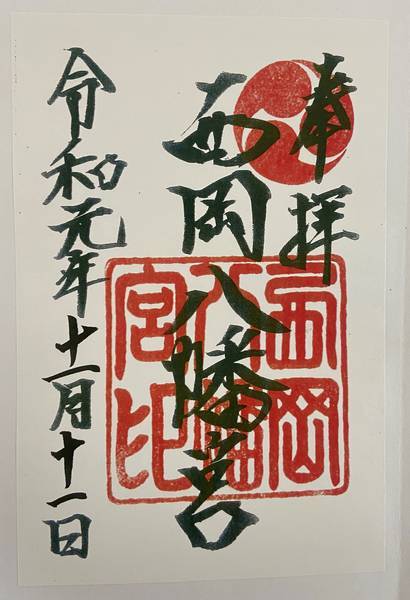 奉拝
西岡八幡宮
西岡八幡宮印
令和元年十一月十一日